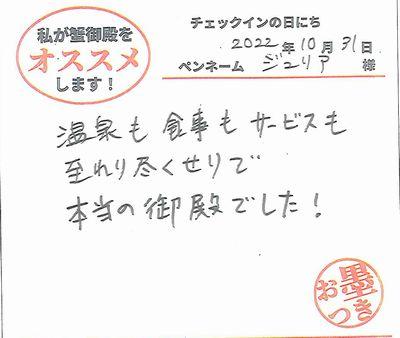 私が蟹御殿を
オススメ
します!
チェックインの日にち
2022年10月31日
ペンネーム ジュリア 様
温泉も食事もサービスも
至れり尽くせりで
本当の御殿でした!
お墨
つき